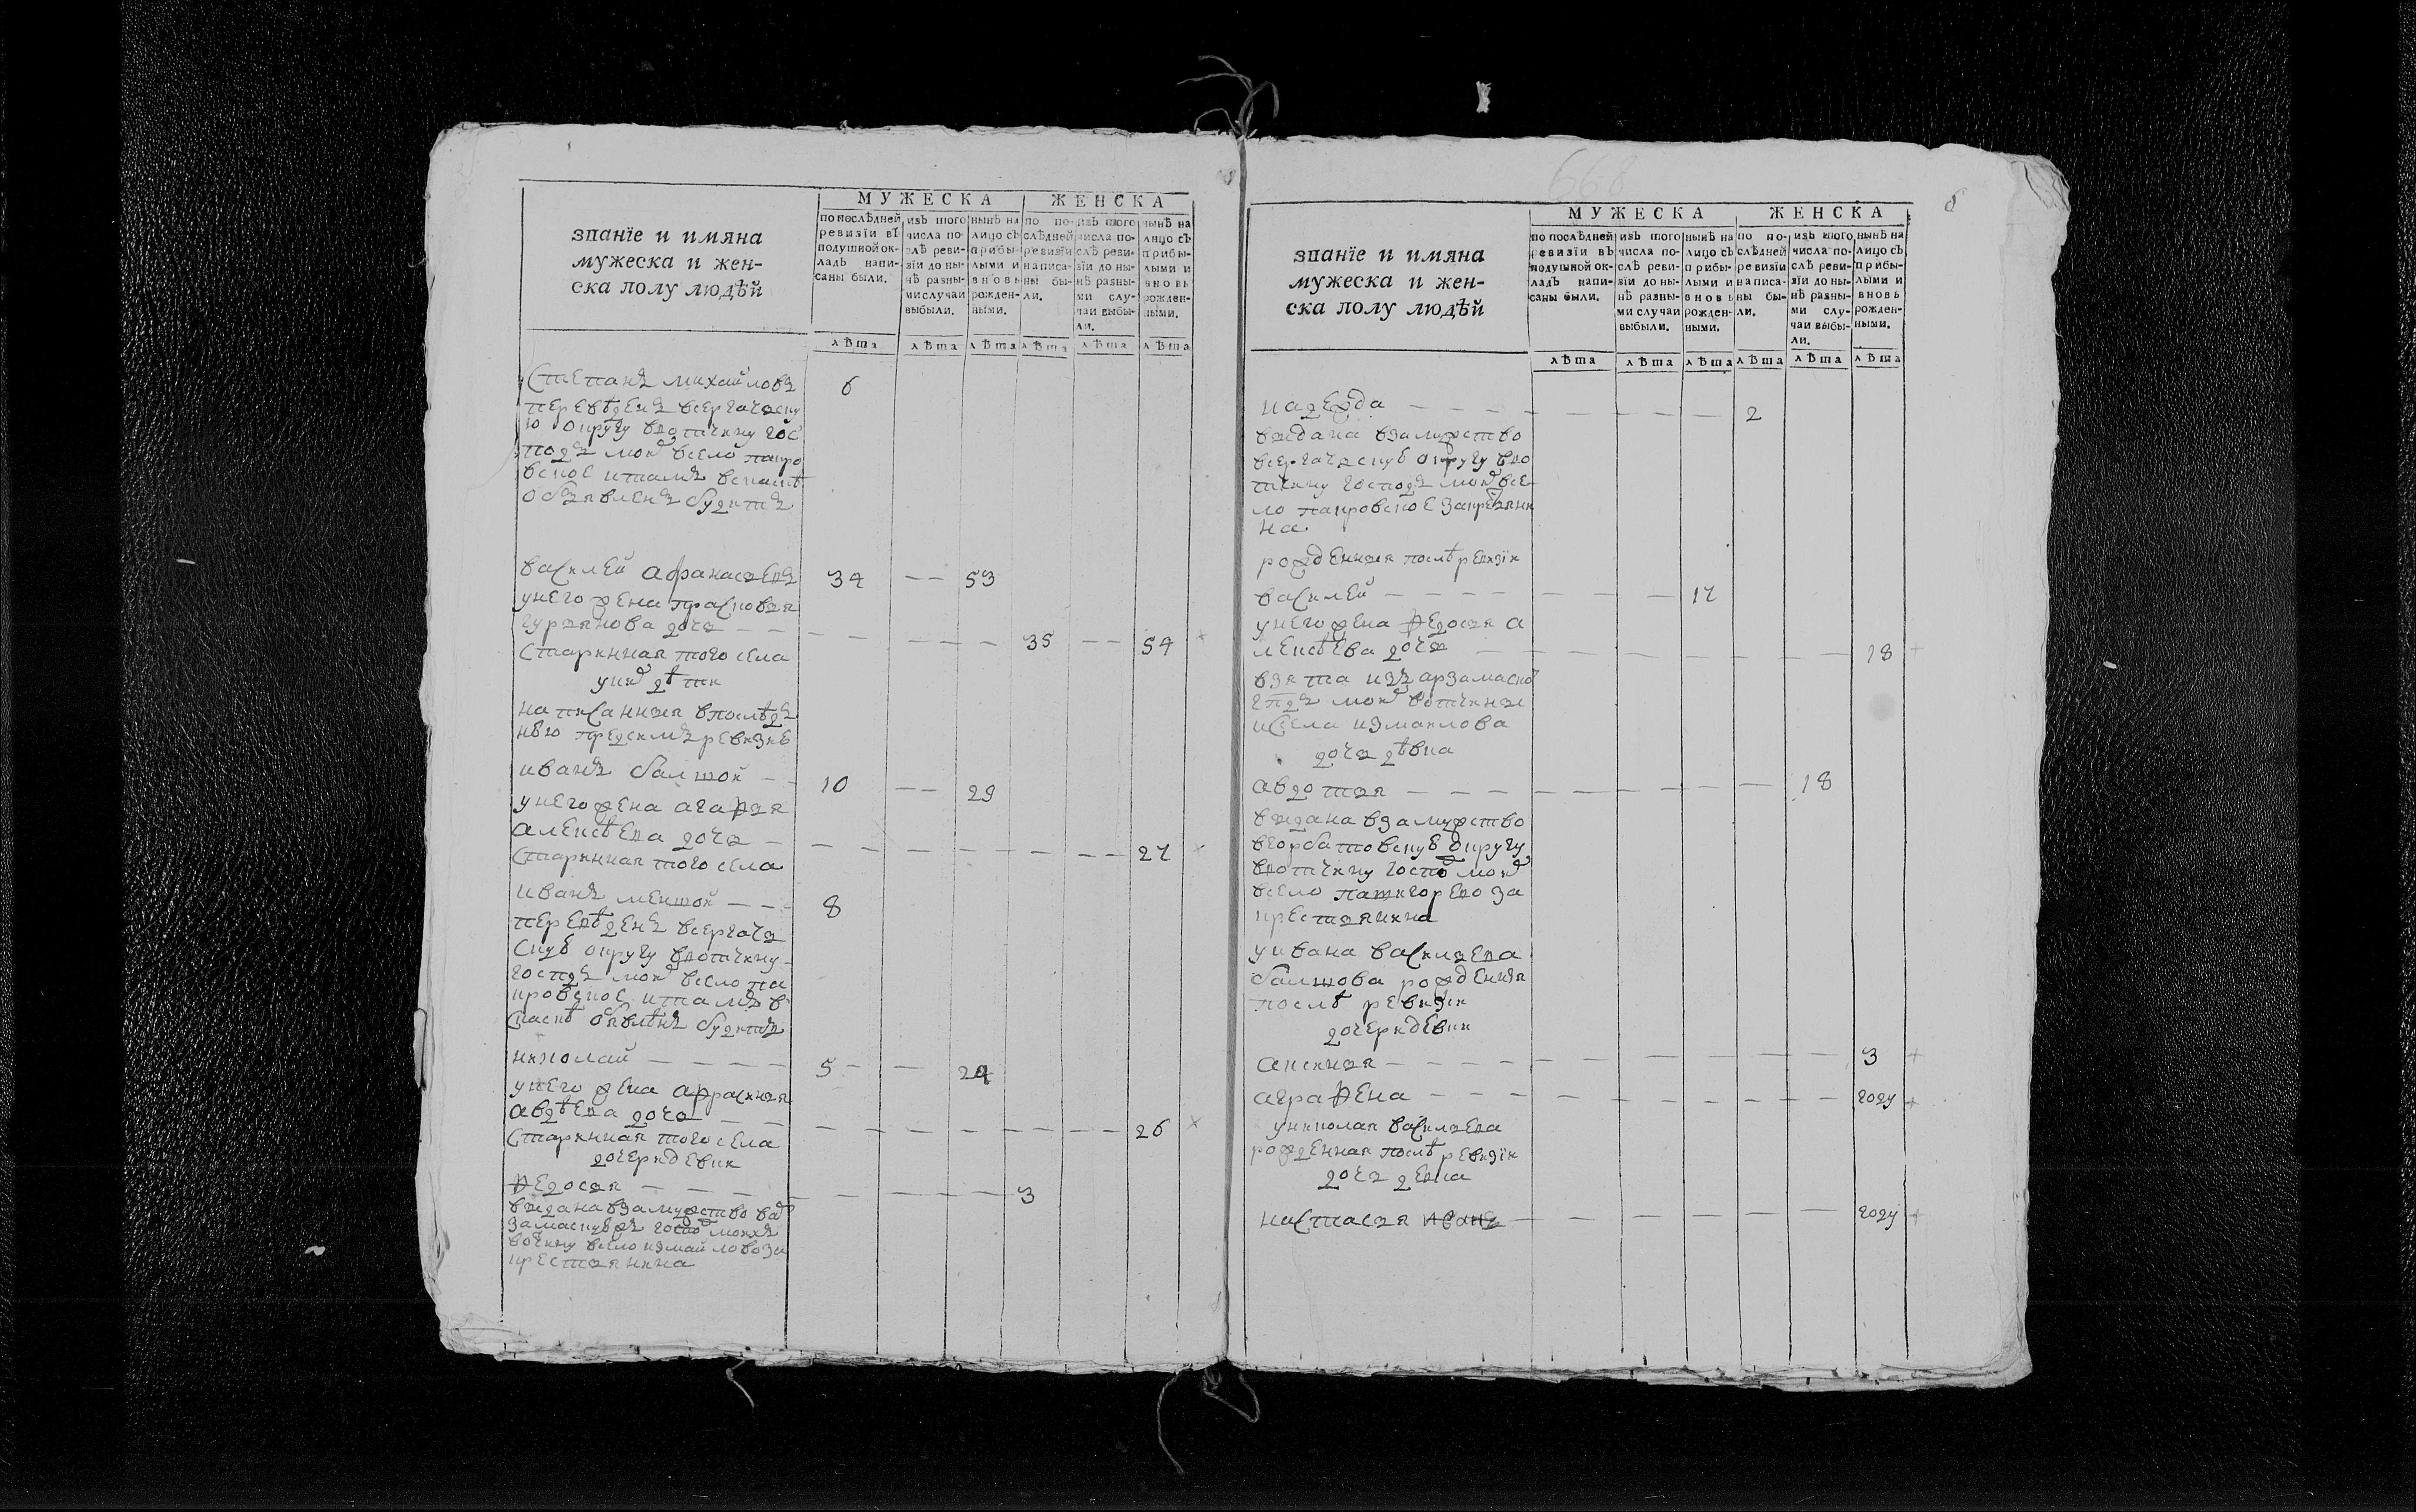 МУЖЕСКА
ЖЕНСКА
званїе и имяна
мужеска и жен-
ска полу людѣй
по послѣдней
ревизїи въ
подушной ок-
ладѣ напи-
саны были.
изъ того
числа по-
слѣ реви-
зїи до ны-
нѣ разны-
ми случаи
выбыли.
нынѣ на
лицо съ
прибы-
лыми и
вновь
рожден-
ными.
по по-
слѣдней
ревизїи
написа-
ны бы-
ли.
изъ того
числа по-
слѣ реви-
зїи до ны-
нѣ разны-
ми слу-
чаи выбы-
ли.
нынѣ на
лицо съ
прибы-
лыми и
вновь
рожден-
ными.
лѣта лѣта лѣта лѣта лѣта лѣта
степанъ михайловъ 6
переведенъ всергачьску
ю округу вво тчину гос
подъ мои всело покро
вское итамъ вскаскѣ
объявленъ будитъ
василей афанасьевъ 34 -- 53
унего жена прасковья
гурьянова дочь 35 -- 54
старинная того села
уних дѣти
написанныя впослѣдъ
нѣю предсимъ ревизиѣ
иванъ балшой 10 -- 29
унего жена агафья
алексѣева дочь 27
старинная того села
иванъ меншой 8
переведенъ всергачь
скуѣ округу ввотчину
госпдъ мои всело по
кровское итамъ в
скаскѣ обявлѣнъ будитъ
николай 5 -- 24
унего жена афрасинья
авдѣева дочь 26
старинная того села
дочеридевки
федосья 3
выдана взамужство вар
замаскуѣ госпо моихъ
вочину всело измайлово за
крестьянина
668
6
МУЖЕСКА
ЖЕНСКА
званїе и имяна
мужеска и жен-
ска полу людѣй
по послѣдней
ревизїи въ
подушной ок-
ладѣ напи-
саны были.
изъ того
числа по-
слѣ реви-
зїи до ны-
нѣ разны-
ми случаи
выбыли.
нынѣ на
лицо съ
прибы-
лыми и
вновь
рожден-
ными.
по по-
слѣдней
ревизїи
написа-
ны бы-
ли.
изъ того
числа по-
слѣ реви-
зїи до ны-
нѣ разны-
ми слу-
чаи выбы-
ли.
нынѣ на
лицо съ
прибы-
лыми и
вновь
рожден-
ными.
лѣта лѣта лѣта лѣта лѣта лѣта
надежда 2
выдана взамужство
всергачьскуѣ округу вво
тчину господъ мои все
ло покровское закрестьяни
на
рожденныя послѣ ревизїи
василей 17
унего жена федосья а
лексѣева дочь 18
взята изъ арзамаской
гпдъ мои вотчины
исела измаилова
дочь дѣвка
авдотья 18
выдана взамужство
вгорбатовскуѣ округу
ввотчину госпо мои
всело пашигорево за
крестьянина
уивана васильева
балшова рожденыя
послѣ ревизїи
дочеридевки
аксинья 3
аграфена году
униколая васильева
рожденная послѣ ревизїи
дочь девка
настасья иванъ году